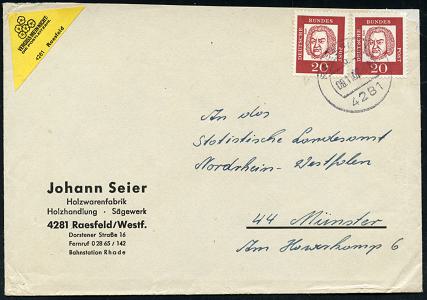 VERGISS MEIN NICHT
DIE POSTLEITZAHL
4281 Raesfeld
DEUTSCHE BUNDES POST
20
DEUTSCHE BUNDES POST
20
4281
An das
Statistische Landesamt
Nordrhein-Westfalen
44 Münster
Am Hawerkamp 6
Johann Seier
Holzwarenfabrik
Holzhandlung · Sägewerk
4281 Raesfeld/Westf.
Dorstener Straße 16
Fernruf 0 28 65 / 142
Bahnstation Rhade